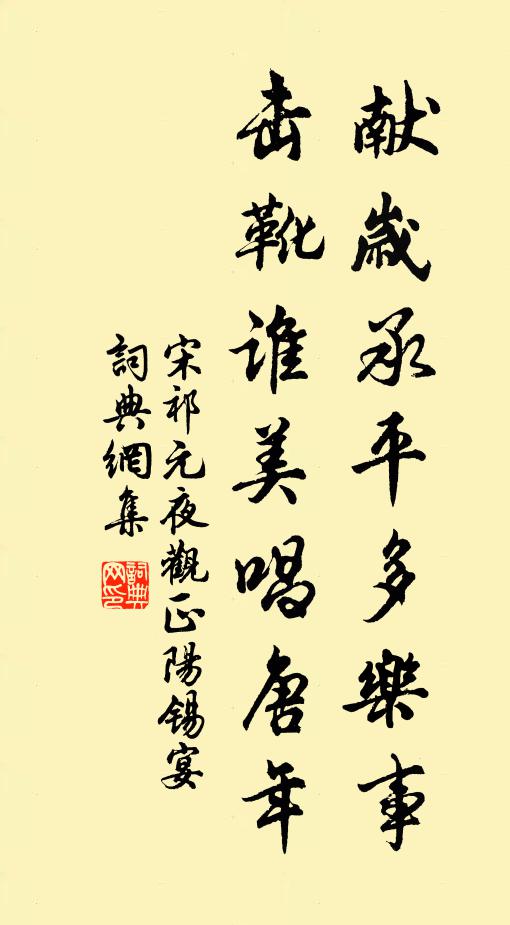 献歲承平多樂事
击靴谁美唱唐年
宋祁元夜觀正陽錫宴
詞典網集
詞典网印